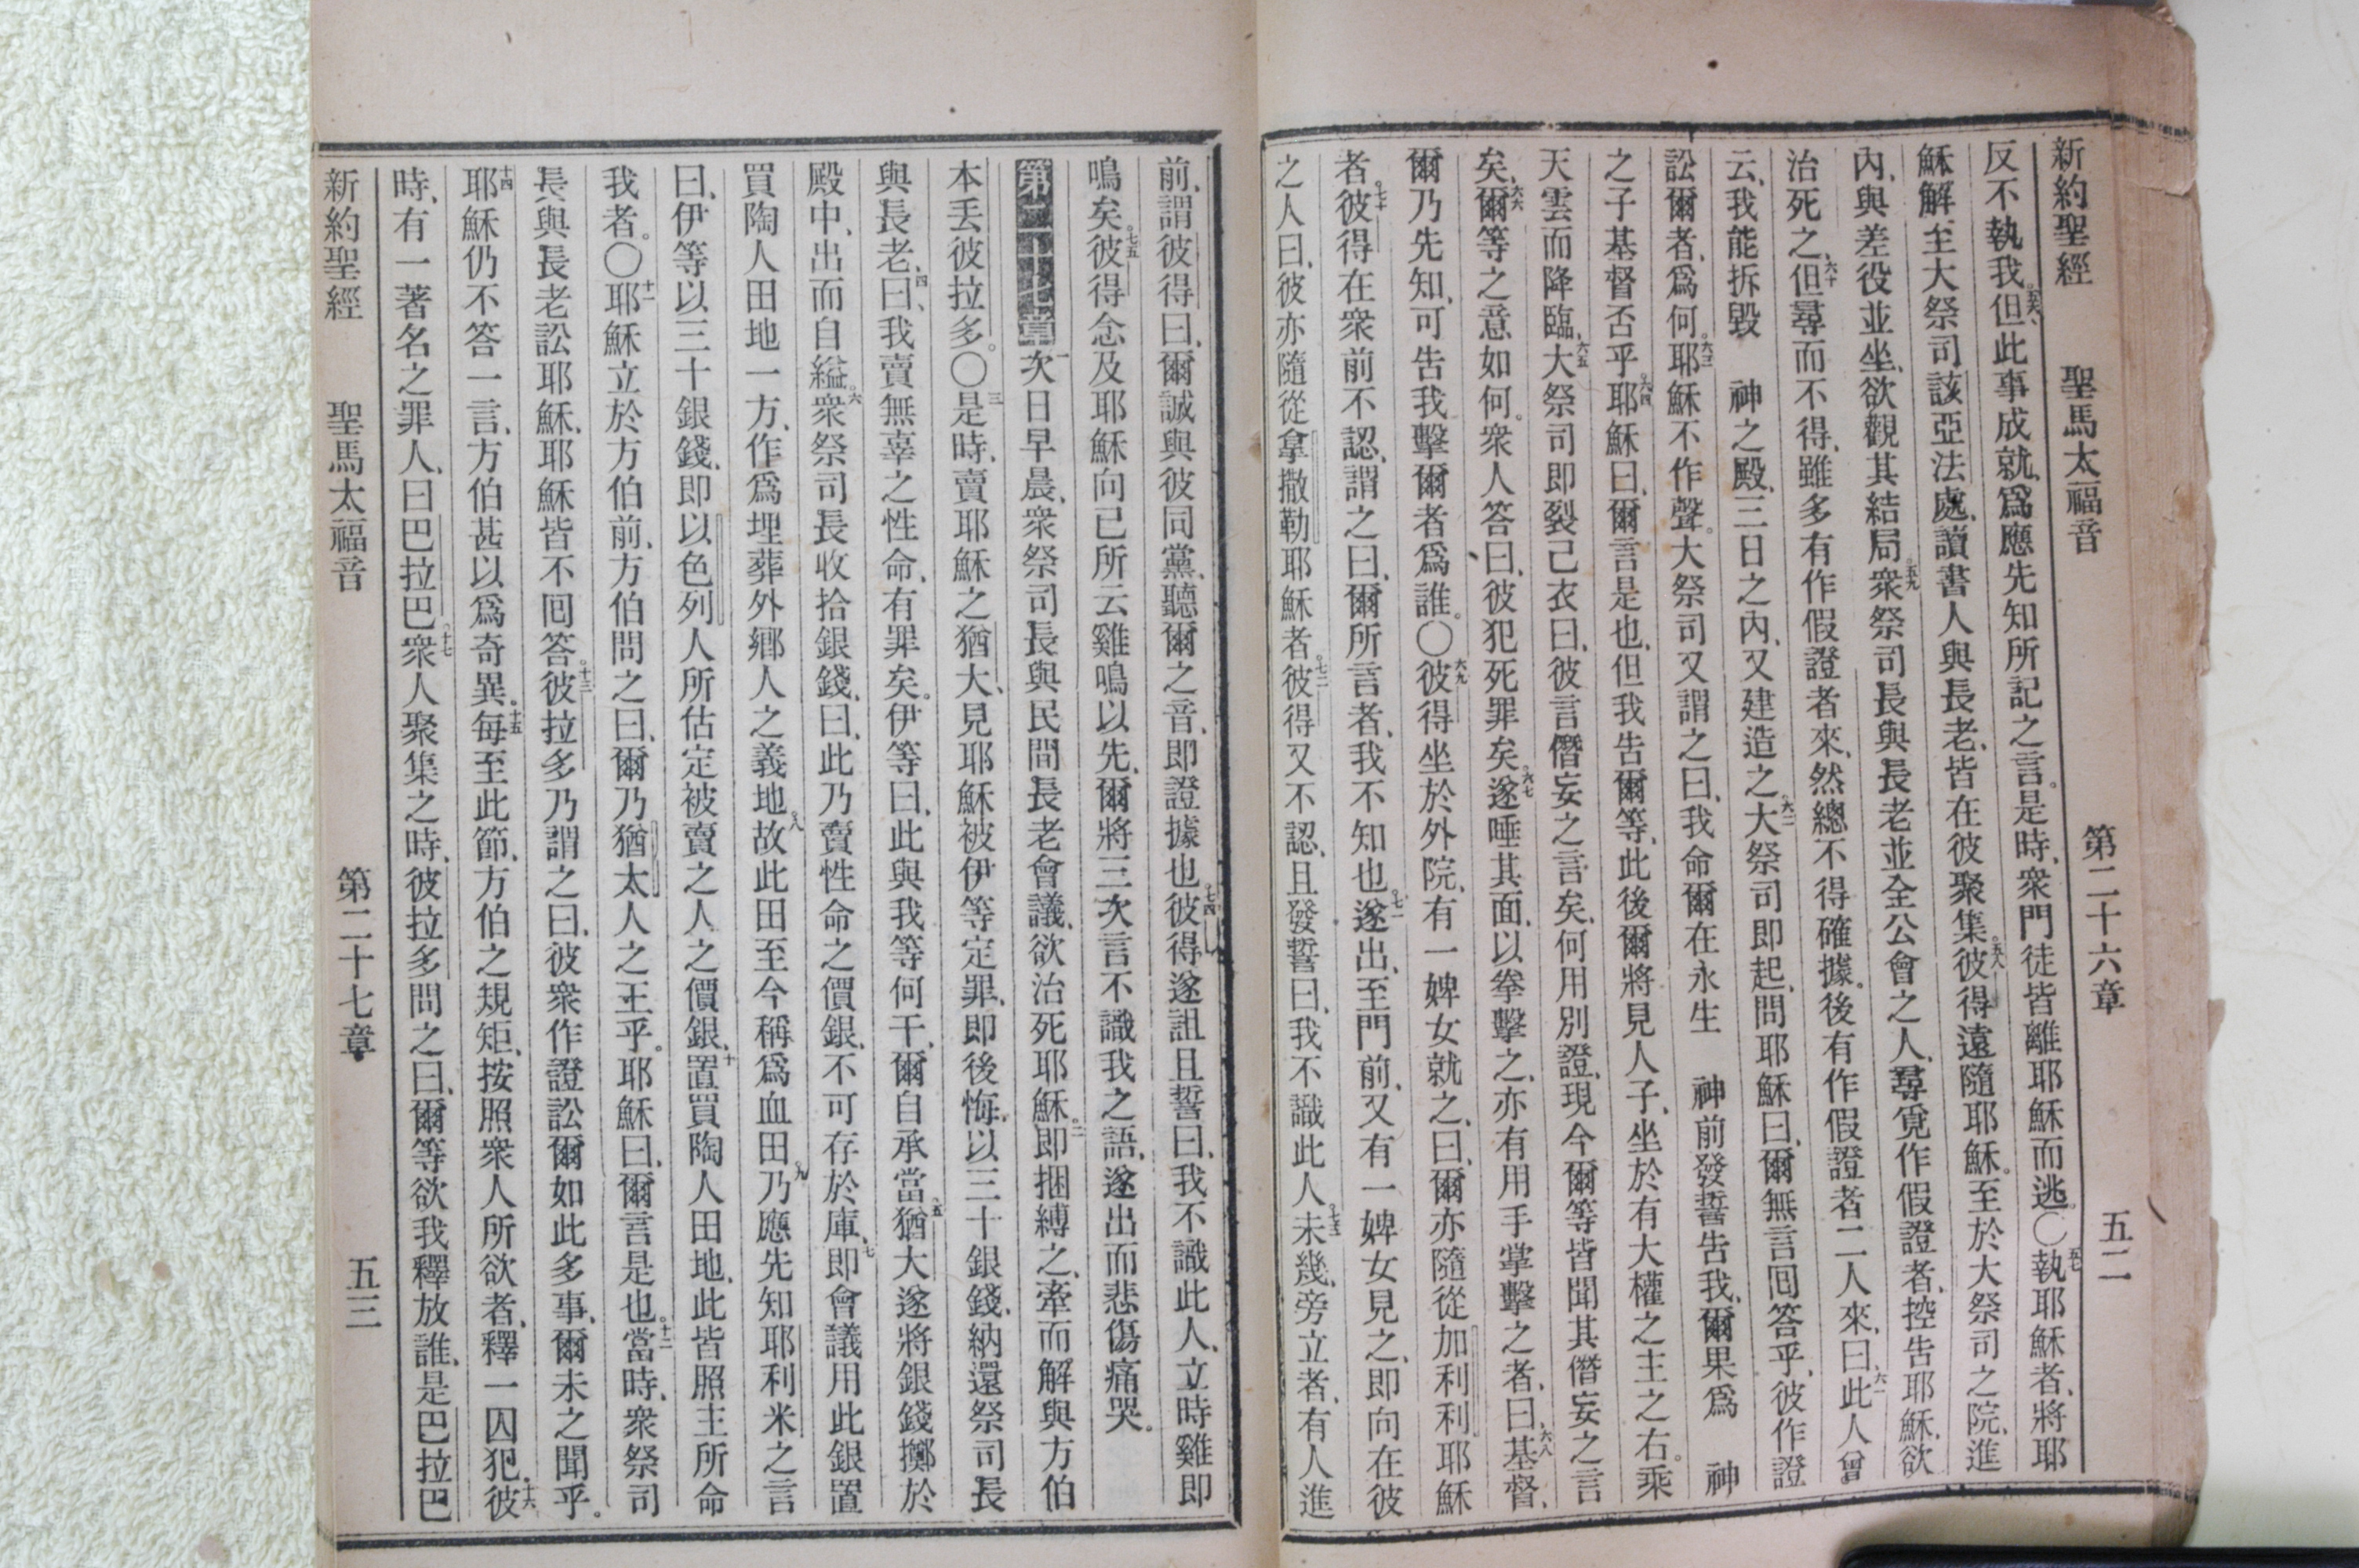 新約聖經 聖馬太福音 第二十六章 五二
反不執我。五六但此事成就、爲應先知所記之言。是時、衆門徒皆離耶穌而逃。〇五七執耶穌者、將耶
穌解至大祭司該亞法處、讀書人與長老、皆在彼聚集。五八彼得遠隨耶穌。至於大祭司之院、進
內、與差役並坐、欲觀其結局。五九衆祭司長與長老並全公會之人、尋覓作假證者、控告耶穌、欲
治死之、六十但尋而不得、雖多有作假證者來、然總不得確據。後有作假證者二人來、曰、六一此人曾
云、我能拆毀 神之殿、三日之內、又建造之。六二大祭司即起、問耶穌曰、爾無言回答乎、彼作證
訟爾者、爲何。六三耶穌不作聲。大祭司又謂之曰、我命爾在永生 神前發誓告我、爾果爲 神
之子基督否乎。六四耶穌曰、爾言是也、但我告爾等、此後爾將見人子、坐於有大權之主之右。乘
天雲而降臨、六五大祭司即裂己衣曰、彼言僭妄之言矣、何用別證、現今爾等皆聞其僭妄之言
矣、六六爾等之意如何。衆人答曰、彼犯死罪矣。六七遂唾其面、以拳擊之、亦有用手掌擊之者、曰、六八基督、
爾乃先知、可告我擊爾者爲誰。〇六九彼得坐於外院、有一婢女就之、曰、爾亦隨從加利利耶穌
者。七十彼得在衆前不認、謂之曰、爾所言者、我不知也。七一遂出、至門前、又有一婢女見之、即向在彼
之人曰、彼亦隨從拿撒勒耶穌者。七二彼得又不認、且發誓曰、我不識此人。七三未幾、旁立者、有人進
前、謂彼得曰、爾誠與彼同黨、聽爾之音、即證據也。七四彼得遂詛且誓曰、我不識此人、立時雞即
鳴矣。七五彼得念及耶穌向已所云雞鳴以先、爾將三次言不識我之語、遂出而悲傷痛哭。
第二十七章 一次日早晨、衆祭司長與民間長老會議、欲治死耶穌。二即捆縛之、牽而解與方伯
本丟彼拉多。〇三是時、賣耶穌之猶大、見耶穌被伊等定罪、即後悔、以三十銀錢、納還祭司長
與長老、四曰、我賣無辜之性命、有罪矣。伊等曰、此與我等何干、爾自承當。五猶大遂將銀錢擲於
殿中、出而自縊。六衆祭司長收拾銀錢、曰、此乃賣性命之價銀、不可存於庫、七即會議用此銀置
買陶人田地一方、作爲埋葬外鄉人之義地。八故此田至今稱爲血田。九乃應先知耶利米之言
曰、伊等以三十銀錢、即以色列人所估定被賣之人之價銀、十置買陶人田地、此皆照主所命
我者。〇十一耶穌立於方伯前、方伯問之曰、爾乃猶太人之王乎。耶穌曰、爾言是也。十二當時、衆祭司
長與長老訟耶穌、耶穌皆不回答。十三彼拉多乃謂之曰、彼衆作證訟爾如此多事、爾未之聞乎。
十四耶穌仍不答一言、方伯甚以爲奇異。十五每至此節、方伯之規矩、按照衆人所欲者、釋一囚犯。十六彼
時、有一著名之罪人、曰巴拉巴。十七衆人聚集之時、彼拉多問之曰、爾等欲我釋放誰、是巴拉巴
新約聖經 聖馬太福音 第二十七章 五三